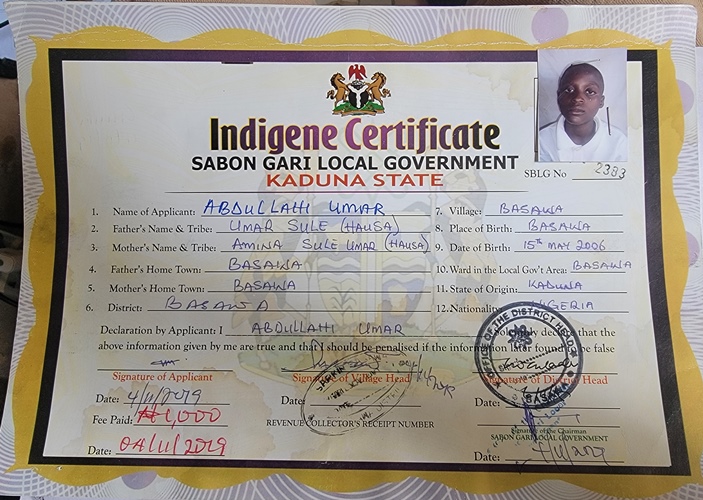 Indigene Certificate
SABON GARI LOCAL GOVERNMENT
KADUNA STATE
SBLG No 2383
1. Name of Applicant: ABDULLAHI UMAR
2. Father's Name & Tribe: UMAR SULE (HAUSA)
3. Mother's Name & Tribe: AMINA SULE UMAR (HAUSA)
4. Father's Home Town: BASAWA
5. Mother's Home Town: BASAWA
6. District: BASAWA
7. Village: BASAWA
8. Place of Birth: BASAWA
9. Date of Birth: 15th MAY 2006
10. Ward in the Local Gov't Area: BASAWA
11. State of Origin: KADUNA
12. Nationality: NIGERIA
Declaration by Applicant: I ABDULLAHI UMAR solemnly declare that the
above information given by me are true and that I should be penalised if the information later found to be false
Signature of Applicant
Signature of Village Head
Signature of District Head
Date: 4/11/2019
Date:
Date:
Fee Paid: ₦1,000
REVENUE COLLECTOR'S RECEIPT NUMBER
Signature of the Chairman
SABON GARI LOCAL GOVERNMENT
Date: 04/11/2019
Date:
OFFICE OF THE DISTRICT HEAD
BASAWA